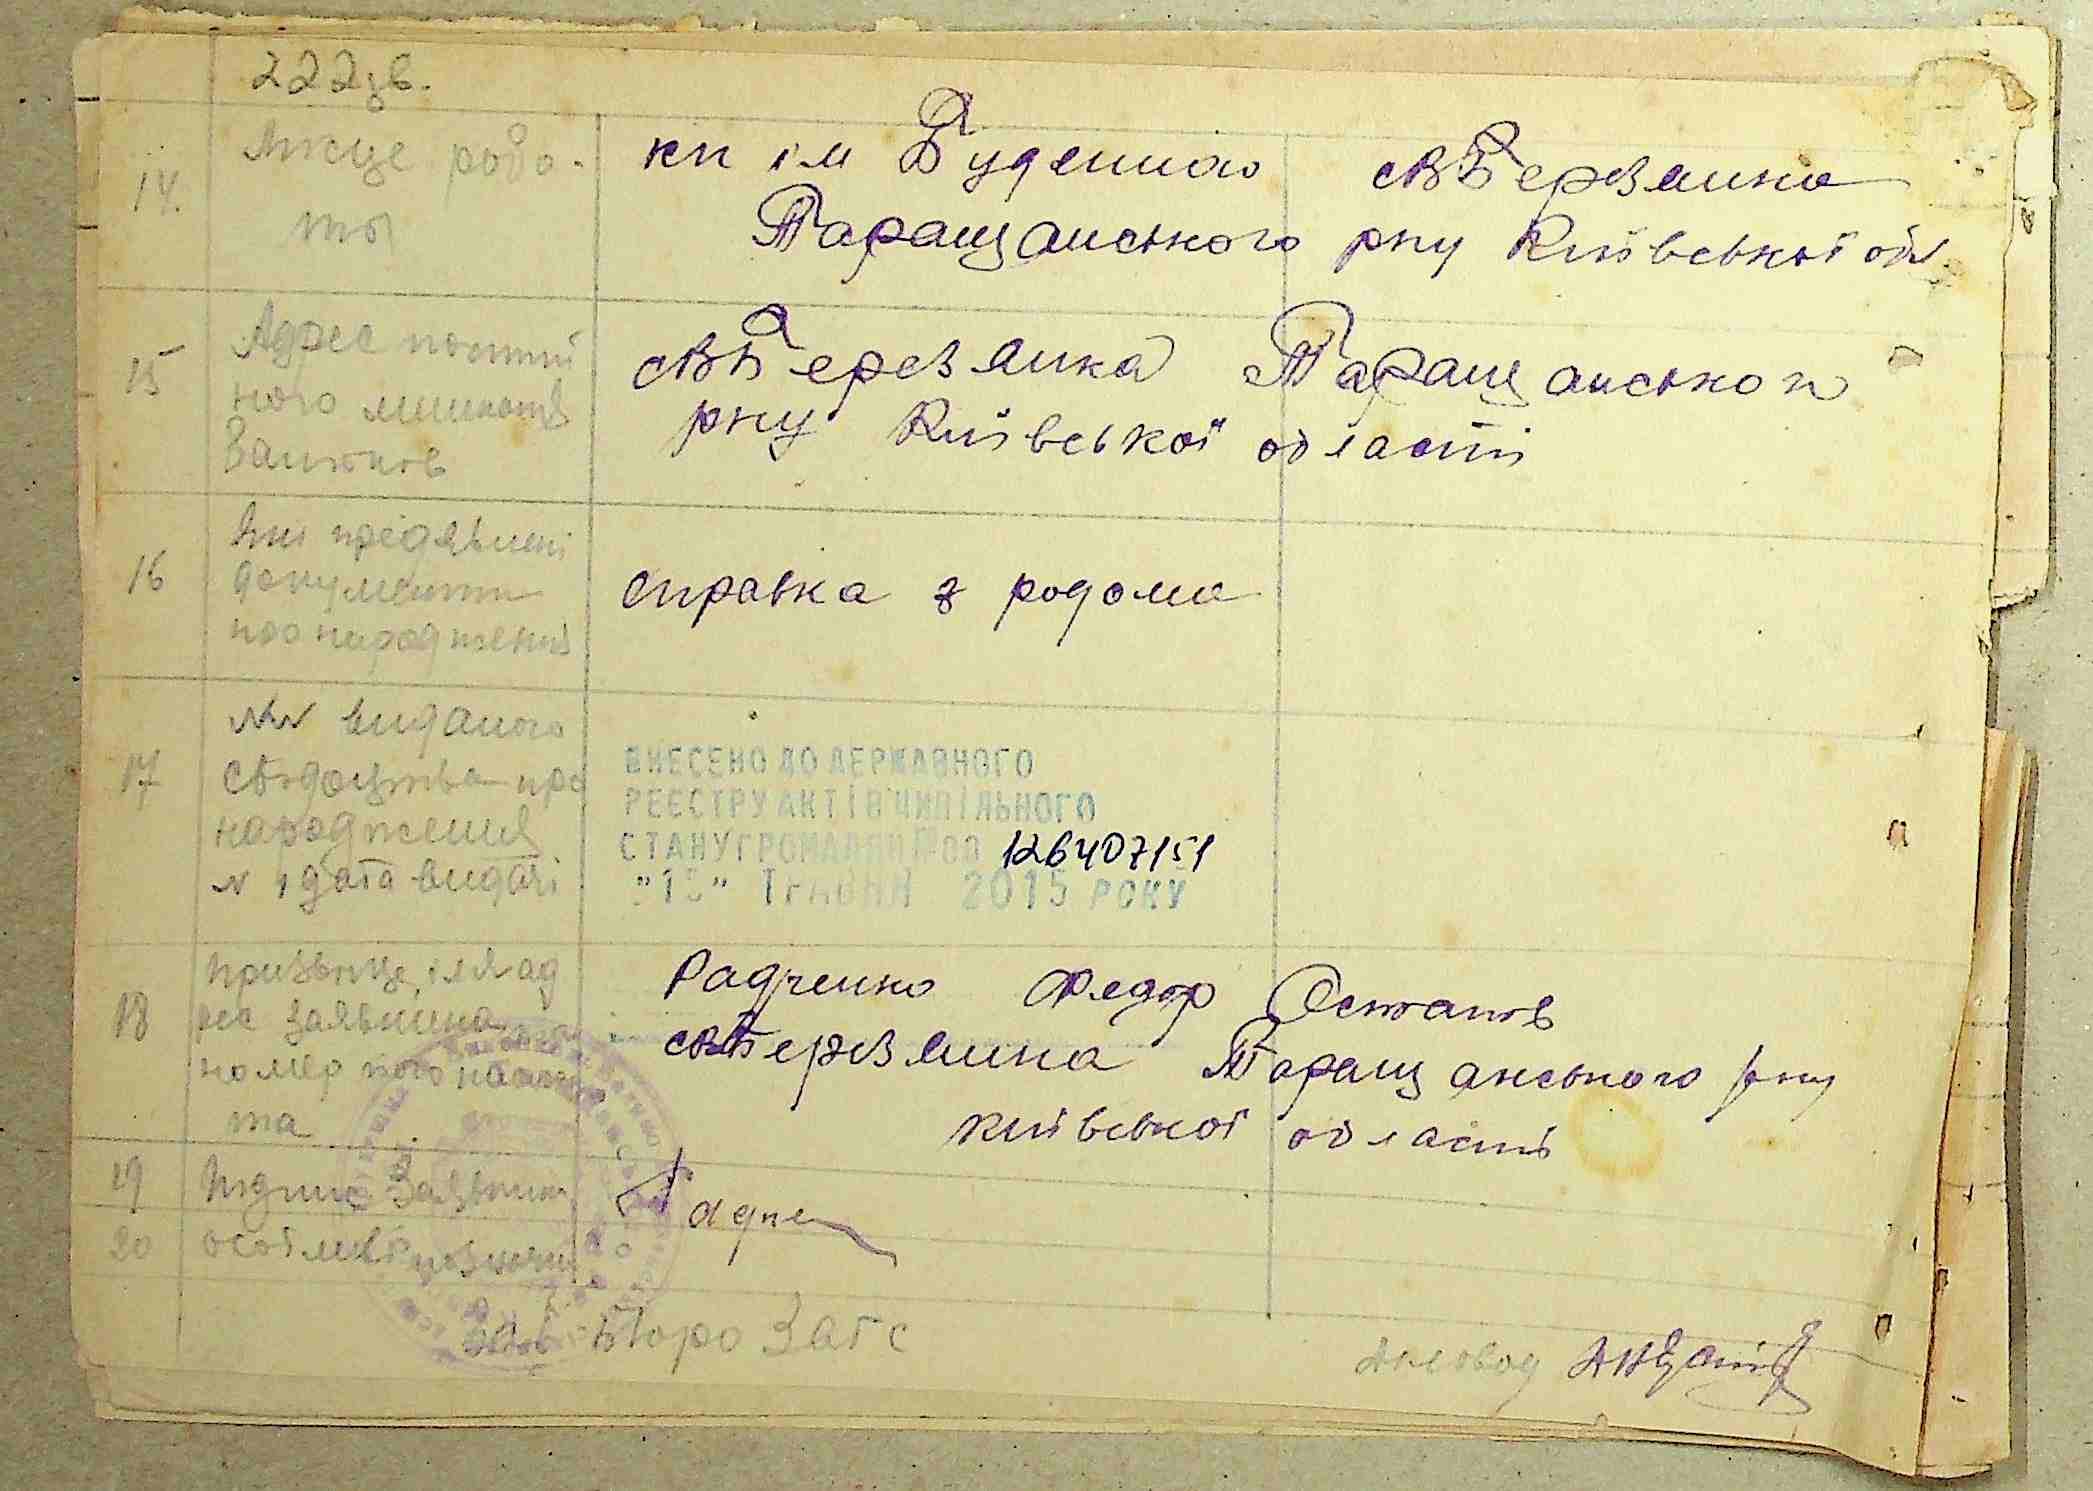 222зв.
14. Місце робо-
ти
кп ім Буденного с Березянка
Таращанського рну Київської обл
15 Адрес постій
ного мешкання
Батьків
с Березянка Таращанського
рну Київської області
16 Які предявлені
документи
про народження
справка з родома
17 виданого
свідоцтва про
народження
і дата видачі
ВНЕСЕНО ДО ДЕРЖАВНОГО
РЕЄСТРУ АКТІВ ЦИВІЛЬНОГО
СТАНУ ГРОМАДЯН 126407151
ТРАВНЯ 2015 РОКУ
18 Призвище, імя ад
рес заявника
номер його
та
Радченко Федор Остапів
с Березянка Таращанського рну
київської області
19 Підпис Заявник
Радче
20 особливі
Зав. Бюро Загс
Діловод